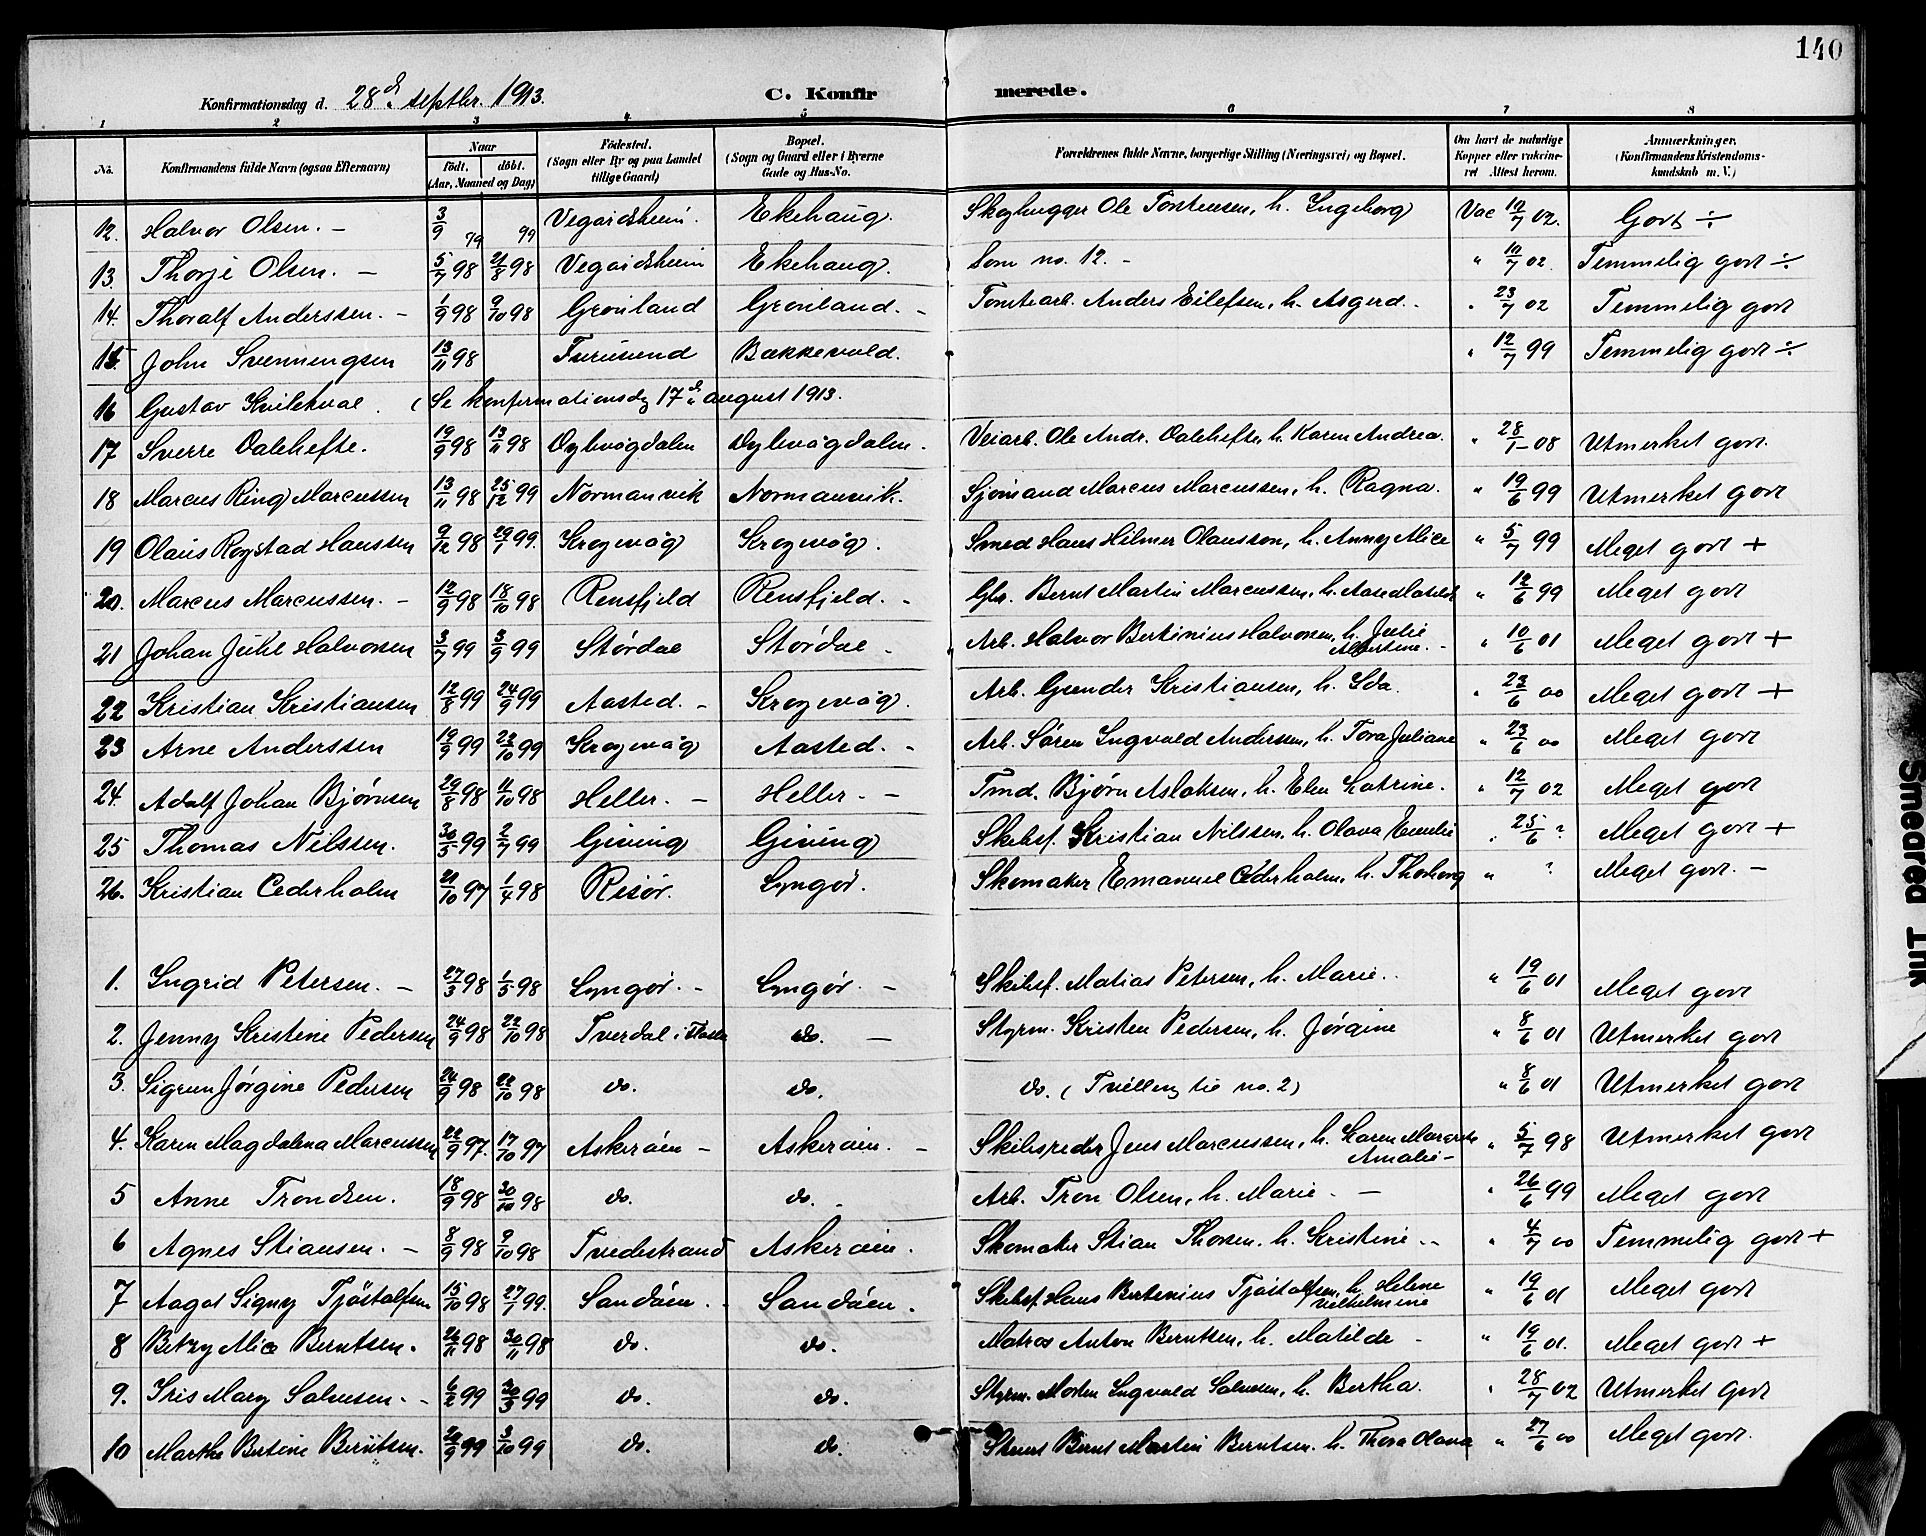 140
Konfirmationsdag d. 28de septbr. 1913. C. Konfirmerede.
1 2 3 4 5 6 7 8
No. Konfirmandens fulde Navn (ogsaa Efternavn) Naar født. døbt. (Aar, Maaned og Dag) Fødested. (Sogn eller By og paa Landet tillige Gaard) Bopæl. (Sogn og Gaard eller i Byerne Gade og Hus-No. Forældrenes fulde Navne, borgerlige Stilling (Næringsvei) og Bopæl. Om havt de naturlige Kopper eller vaccineret Attest herom. Anmærkninger. (Konfirmandens Kristendomskundskab m. V.)
12. Halvor Olsen. – 3/9 99 99 Vegardsheim. Ekehaug. Skoghugger Ole Torstensen, h. Ingeborg Vac 10/7 02. Godt ÷
13. Thorje Olsen. – 5/7 98 21/8 98 Vegardsheim Ekehaug. Som no. 12. – " 10/7 02. Temmelig godt ÷
14. Thoralf Anderssen. – 1/9 98 9/10 98 Grønland Grønland. – Tomtearb. Anders Eilefsen, h. Asgerd. " 23/7 02 Temmelig godt
15. John Svenningsen 13/11 98 Furusund Bakkevold. " 12/7 99 Temmelig godt ÷
16 Gustav Kvilekval. (Se konfirmationsdag 17de august 1913.
17 Sverre Dalehefte. 19/9 98 13/11 98 Dybvågdalen Dybvågdalen. Veiarb. Ole Andr. Dalehefte, h. Karen Andrea. " 28/1 08 Utmerket godt.
18 Marcus Ring Marcussen 13/11 98 25/12 99 Normanvik Normanvik. Sjømand Marcus Marcussen, h. Ragna. " 19/6 99 Utmerket godt
19 Olaus Rogstad Hanssen 9/12 98 29/1 99. Krogevåg Krogevåg. Smed Hans Hilmer Olausson, h. Anny Alice " 5/7 99 Meget godt +
20. Marcus Marcussen. – 12/9 98 18/10 98 Rensfjeld Rensfjeld. – Gbr. Bernt Martin Marcussen, h. Aase " 12/6 99 Meget godt
21 Johan Juhl Halvorsen 3/7 99 3/9 99 Størdal Størdal – Arb. Halvor Bertinius Halvorsen, h. Julie Albertine. – " 10/6 01 Meget godt +
22 Kristian Kristiansen 12/8 99 24/9 99 Aasted. – Krogevåg. Arb. Gunder Kristiansen, h. Ida. " 23/6 00 Meget godt +
23 Arne Anderssen 19/9 99 22/10 99 Krogevåg Aasted. – Arb. Søren Ingvald Andersen, h. Tora Juliane " 23/6 00 Meget godt
24. Adolf Johan Bjørnsen 29/8 98 11/10 98 Heller. – Heller. – Tmd. Bjørn Aslaksen, h. Elen Katrine. " 12/7 02 Meget godt
25 Thomas Nilssen. 30/5 99 2/7 99 Giving Giving Skibsf. Kristian Nilssen, h. Olava Emelie " 25/6 ? Meget godt +
26. Kristian Cederholm 21/10 97 1/4 98 Risør. Lyngør. Skomaker Emanuel Cederholm, h. Thorborg " ? Meget godt. –
1. Ingrid Petersen. – 27/3 98 1/5 98 Lyngør. – Lyngør. – Skibsf. Matias Petersen, h. Marie. " 19/6 01 Meget godt
2. Jenny Kristine Pedersen 24/9 98 22/10 98 Tverdal i Flosta do. – Styrm. Kristen Pedersen, h. Jørgine " 8/6 01 Utmerket godt
3. Sigrun Jørgine Pedersen 24/9 98 22/10 98 do. do. do. (Tvilling til no. 2) " 8/6 01 Utmerket godt
4. Karen Magdalena Marcussen 22/9 97. 17/10 97 Askerøen – Askerøen. – Skibsreder Jens Marcussen, h. Karen Margrete Amalie – " 5/7 98 Utmerket godt
5 Anne Trondsen. 18/9 98 30/10 98 do. do. Arb. Tron Olsen, h. Marie. – " 26/6 99 Meget godt
6 Agnes Stiansen. – 8/9 98 9/10 98 Tvedestrand Askerøen. Skomaker Stian Thorsen. h. Kristine. – " 4/7 00 Temmelig godt +
7 Aagot Signy Tjøstolfsen 15/10 98 27/1 99. Sandøen. Sandøen. Skibsf. Hans Bertinius Tjøstolfsen, h. Helene Vilhelmine " 19/6 01 Meget godt
8 Betzy Alice Berntsen. 26/11 98 30/11 98 do. do. Matros Anton Berntsen, h. Matilde – " 19/6 01. Meget godt +
9. Iris Mary Salvesen. – 6/2 99 30/3 99 do. do. Styrm. Morten Ingvald Salvesen, h. Bertha. " 28/7 02 Utmerket godt
10 Marthe Bertine Berntsen. 20/9 99 3/10 99 do. do. Bernt Martin Berntsen. h. Thora Olava " 27/6 00 Meget godt.
Smeared Ink